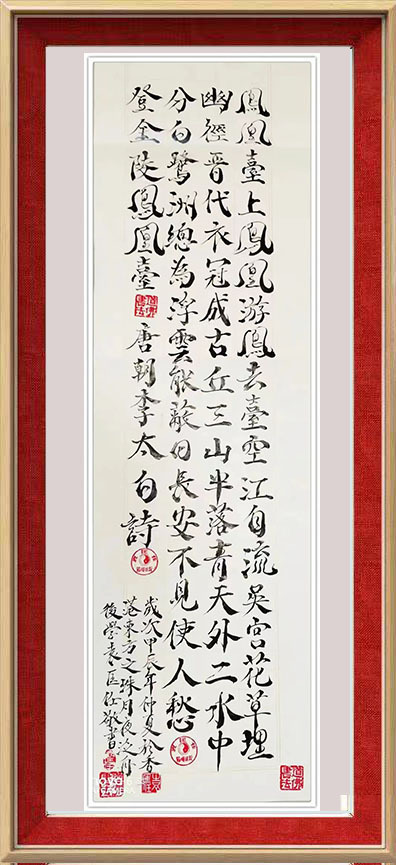 鳳凰臺上鳳凰游鳳去臺空江自流吳宮花草埋
幽徑晉代衣冠成古丘三山半落青天外二水中
分白鷺洲總為浮雲能蔽日長安不見使人愁
登金陵鳳凰臺 唐朝李太白詩
歲次甲辰年仲夏於香
港東方之珠月夜泛舟
後學袁敬書